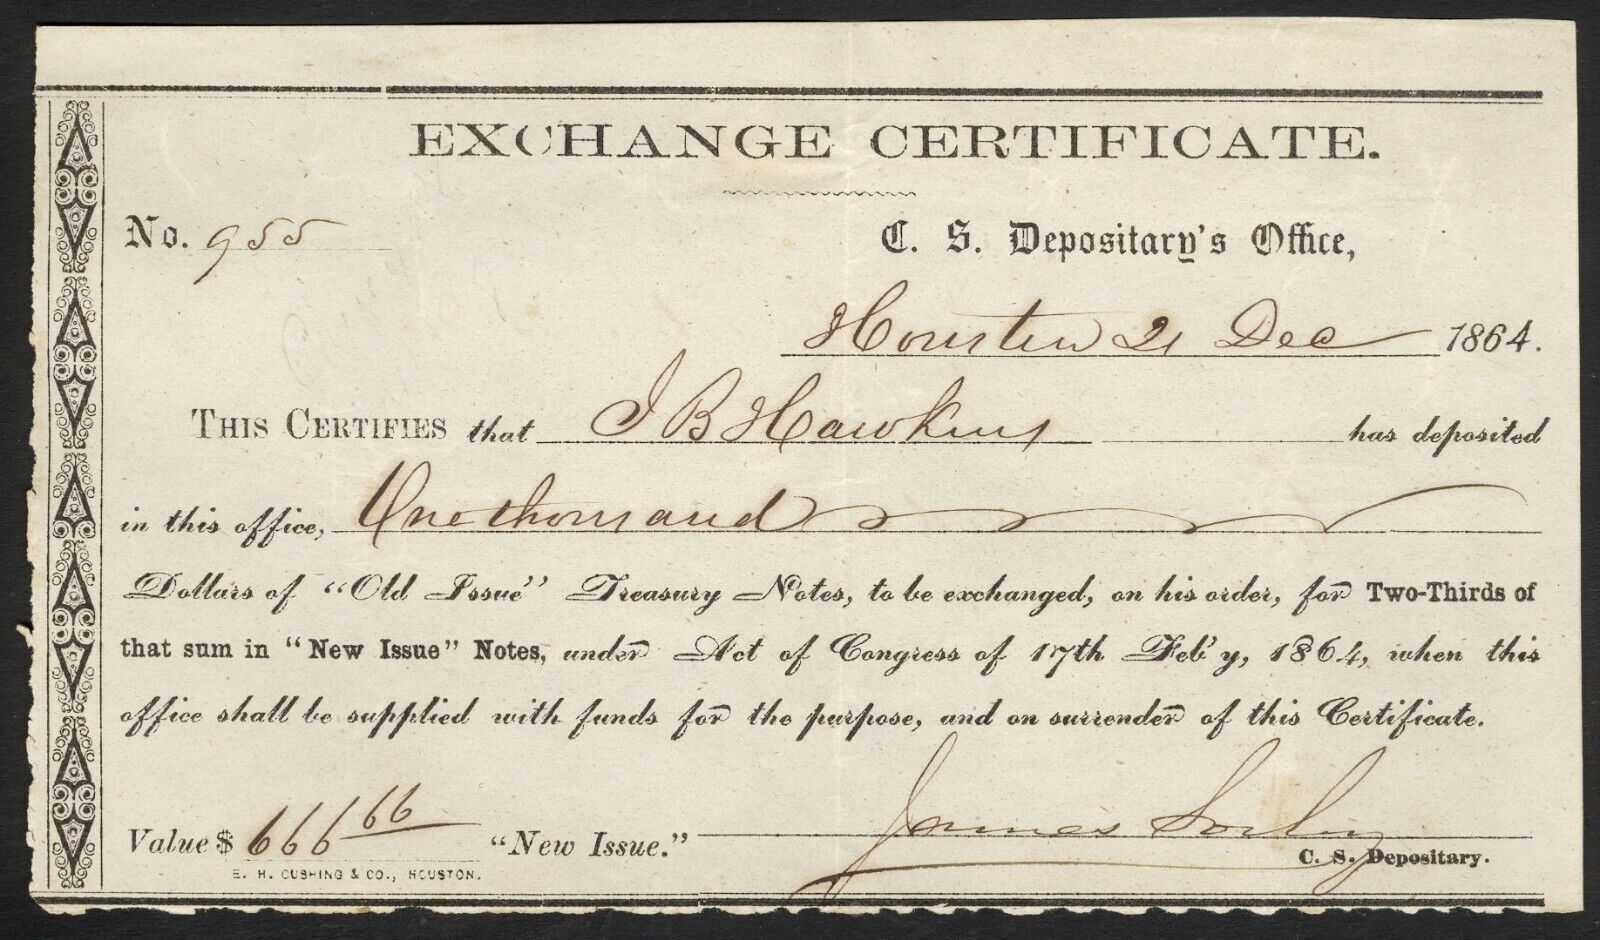 EXCHANGE CERTIFICATE.
No. 955
C. S. Depositary's Office,
Houston 21 Dec 1864.
THIS CERTIFIES that J B Hawkins has deposited
in this office, One thousand
Dollars of "Old Issue" Treasury Notes, to be exchanged, on his order, for Two-Thirds of
that sum in "New Issue" Notes, under Act of Congress of 17th Feb'y, 1864, when this
office shall be supplied with funds for the purpose, and on surrender of this Certificate.
Value $ 666 66 "New Issue." James Sorley
C. S. Depositary.
E. H. CUSHING & CO., HOUSTON.